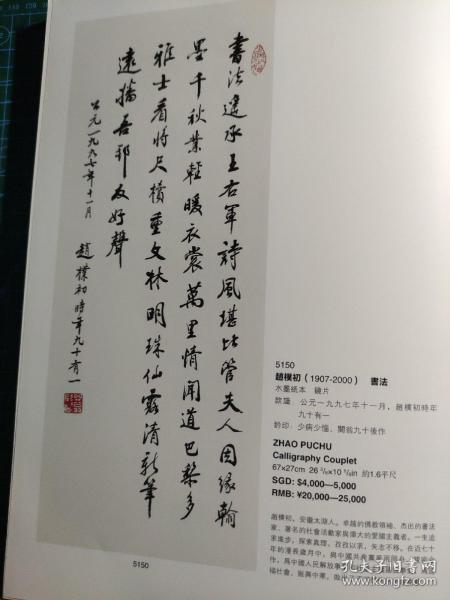 書法遙承王右軍詩風堪比管夫人因緣翰
墨千秋業輕暖衣裳萬里情聞道巴黎多
雅士看將尺檟重文林明珠仙露清新筆
遠播吾邦友好聲
公元一九九七年十一月 趙樸初時年九十有一
5150
5150
趙樸初（1907-2000） 書法
水墨紙本 鏡片
款識 公元一九九七年十一月，趙樸初時年
九十有一
鈐印：少病少惱、開翁九十後作
ZHAO PUCHU
Calligraphy Couplet
67×27cm 26 3/8×10 5/8in 約1.6平尺
SGD: $4,000—5,000
RMB: ¥20,000—25,000
趙樸初，安徽太湖人。卓越的佛教領袖、杰出的書法
家、著名的社會活動家與偉大的愛國主義者。一生追
求進步，探索真理，孜孜以求，矢志不移。在近七十
年的漫長歲月中，與中國共產黨
爲中國人民解放事
福社會、振興中華，做出
孔夫子旧书网